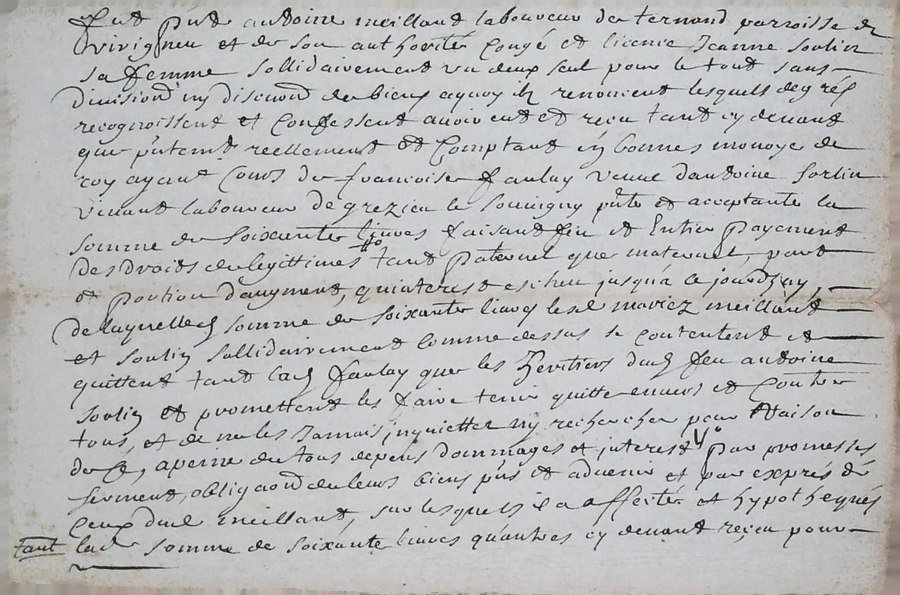 fut p̃nt antoine meilland laboureur de ternand parroisse de
et de son authoritté congé et licence Jeanne Sortin
sa femme sollidairement un deux seul pour le tout sans
division ny discution de biens aquoy ilz renoncent lesquels de gré
recognoissent et confessent avoir eut et receu tant cy devant
que p̃ntem̃t reellement et comptant en bonnes monoye de
roy ayant cours de francoise faulay veuve d'antoine sortin
vivant laboureur de grezieu le p̃nte et acceptante la
somme de soixante livres faisant fin et Entier payement
des droits de legittimes tant paternel que maternel, part
et portion d'augment, qu'interest escheu jusqu'à ce jourd'huy,
de laquelle somme de soixante livres lesd mariez meilland
et sortin sollidairement comme dessus se contentent et
quittent tant lad faulay que les heritiers dud feu antoine
sortin et promettent les faire tenir quitte envers et contre
tous, et de ne les Jamais inquietter ny rechercher pour raison
de ce, a peine de tous depens dommages et interest par promesses
serment, obligaõn de leurs biens p̃ns et advenir et par exprés de
ceux dud meilland, sur lesquels il a affecté et hypothequés
tant lad somme de soixante livres qu'autres cy devant receu pour